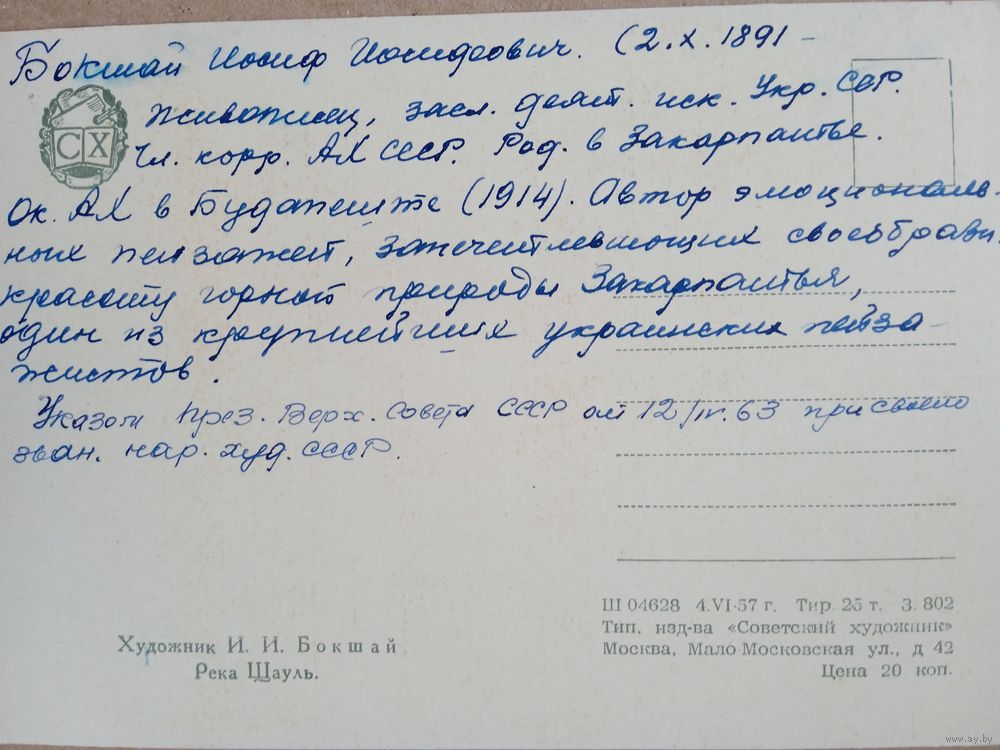 Бокшай Иосиф Иосифович. (2.X.1891 –
живописец, засл. деят. иск. Укр. ССР.
Чл. корр. АХ СССР. Род. в Закарпатье.
Ок. АХ в Будапеште (1914). Автор эмоциональ-
ных пейзажей, запечатлевающих своеобразн.
красоту горной природы Закарпатья,
один из крупнейших украинских пейза-
жистов.
Указом През. Верх. Совета СССР от 12/IV.63 присвоено
зван. нар. худ. СССР.
СХ
Художник И. И. Бокшай
Река Щауль.
Ш 04628 4.VI-57 г. Тир. 25 т. З. 802
Тип. изд-ва «Советский художник»
Москва, Мало Московская ул., д 42
Цена 20 коп.
www.ay.by